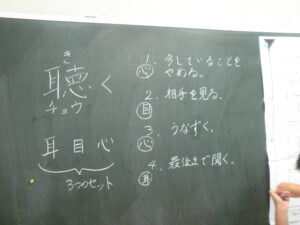 き
聴く
チョウ
耳 目 心
3つのセット
1. 今していることを
心 やめる。
2. 相手を見る。
目
3. うなずく。
心
4. 最後まで聞く。
耳